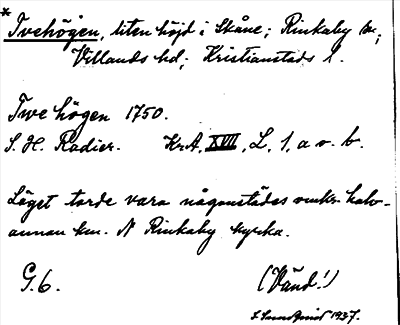 * Tvehögen, liten höjd i Skåne; Rinkaby sn;
Villands hd; Kristianstads l.
Twe högen 1750.
S. H. Radier. Kr.A. XVII, L, 1, a o. b.
Läget torde vara någonstädes omkr. halv-
annan km. N Rinkaby kyrka.
G. 6. (Vänd!)
Sundquist 1937.